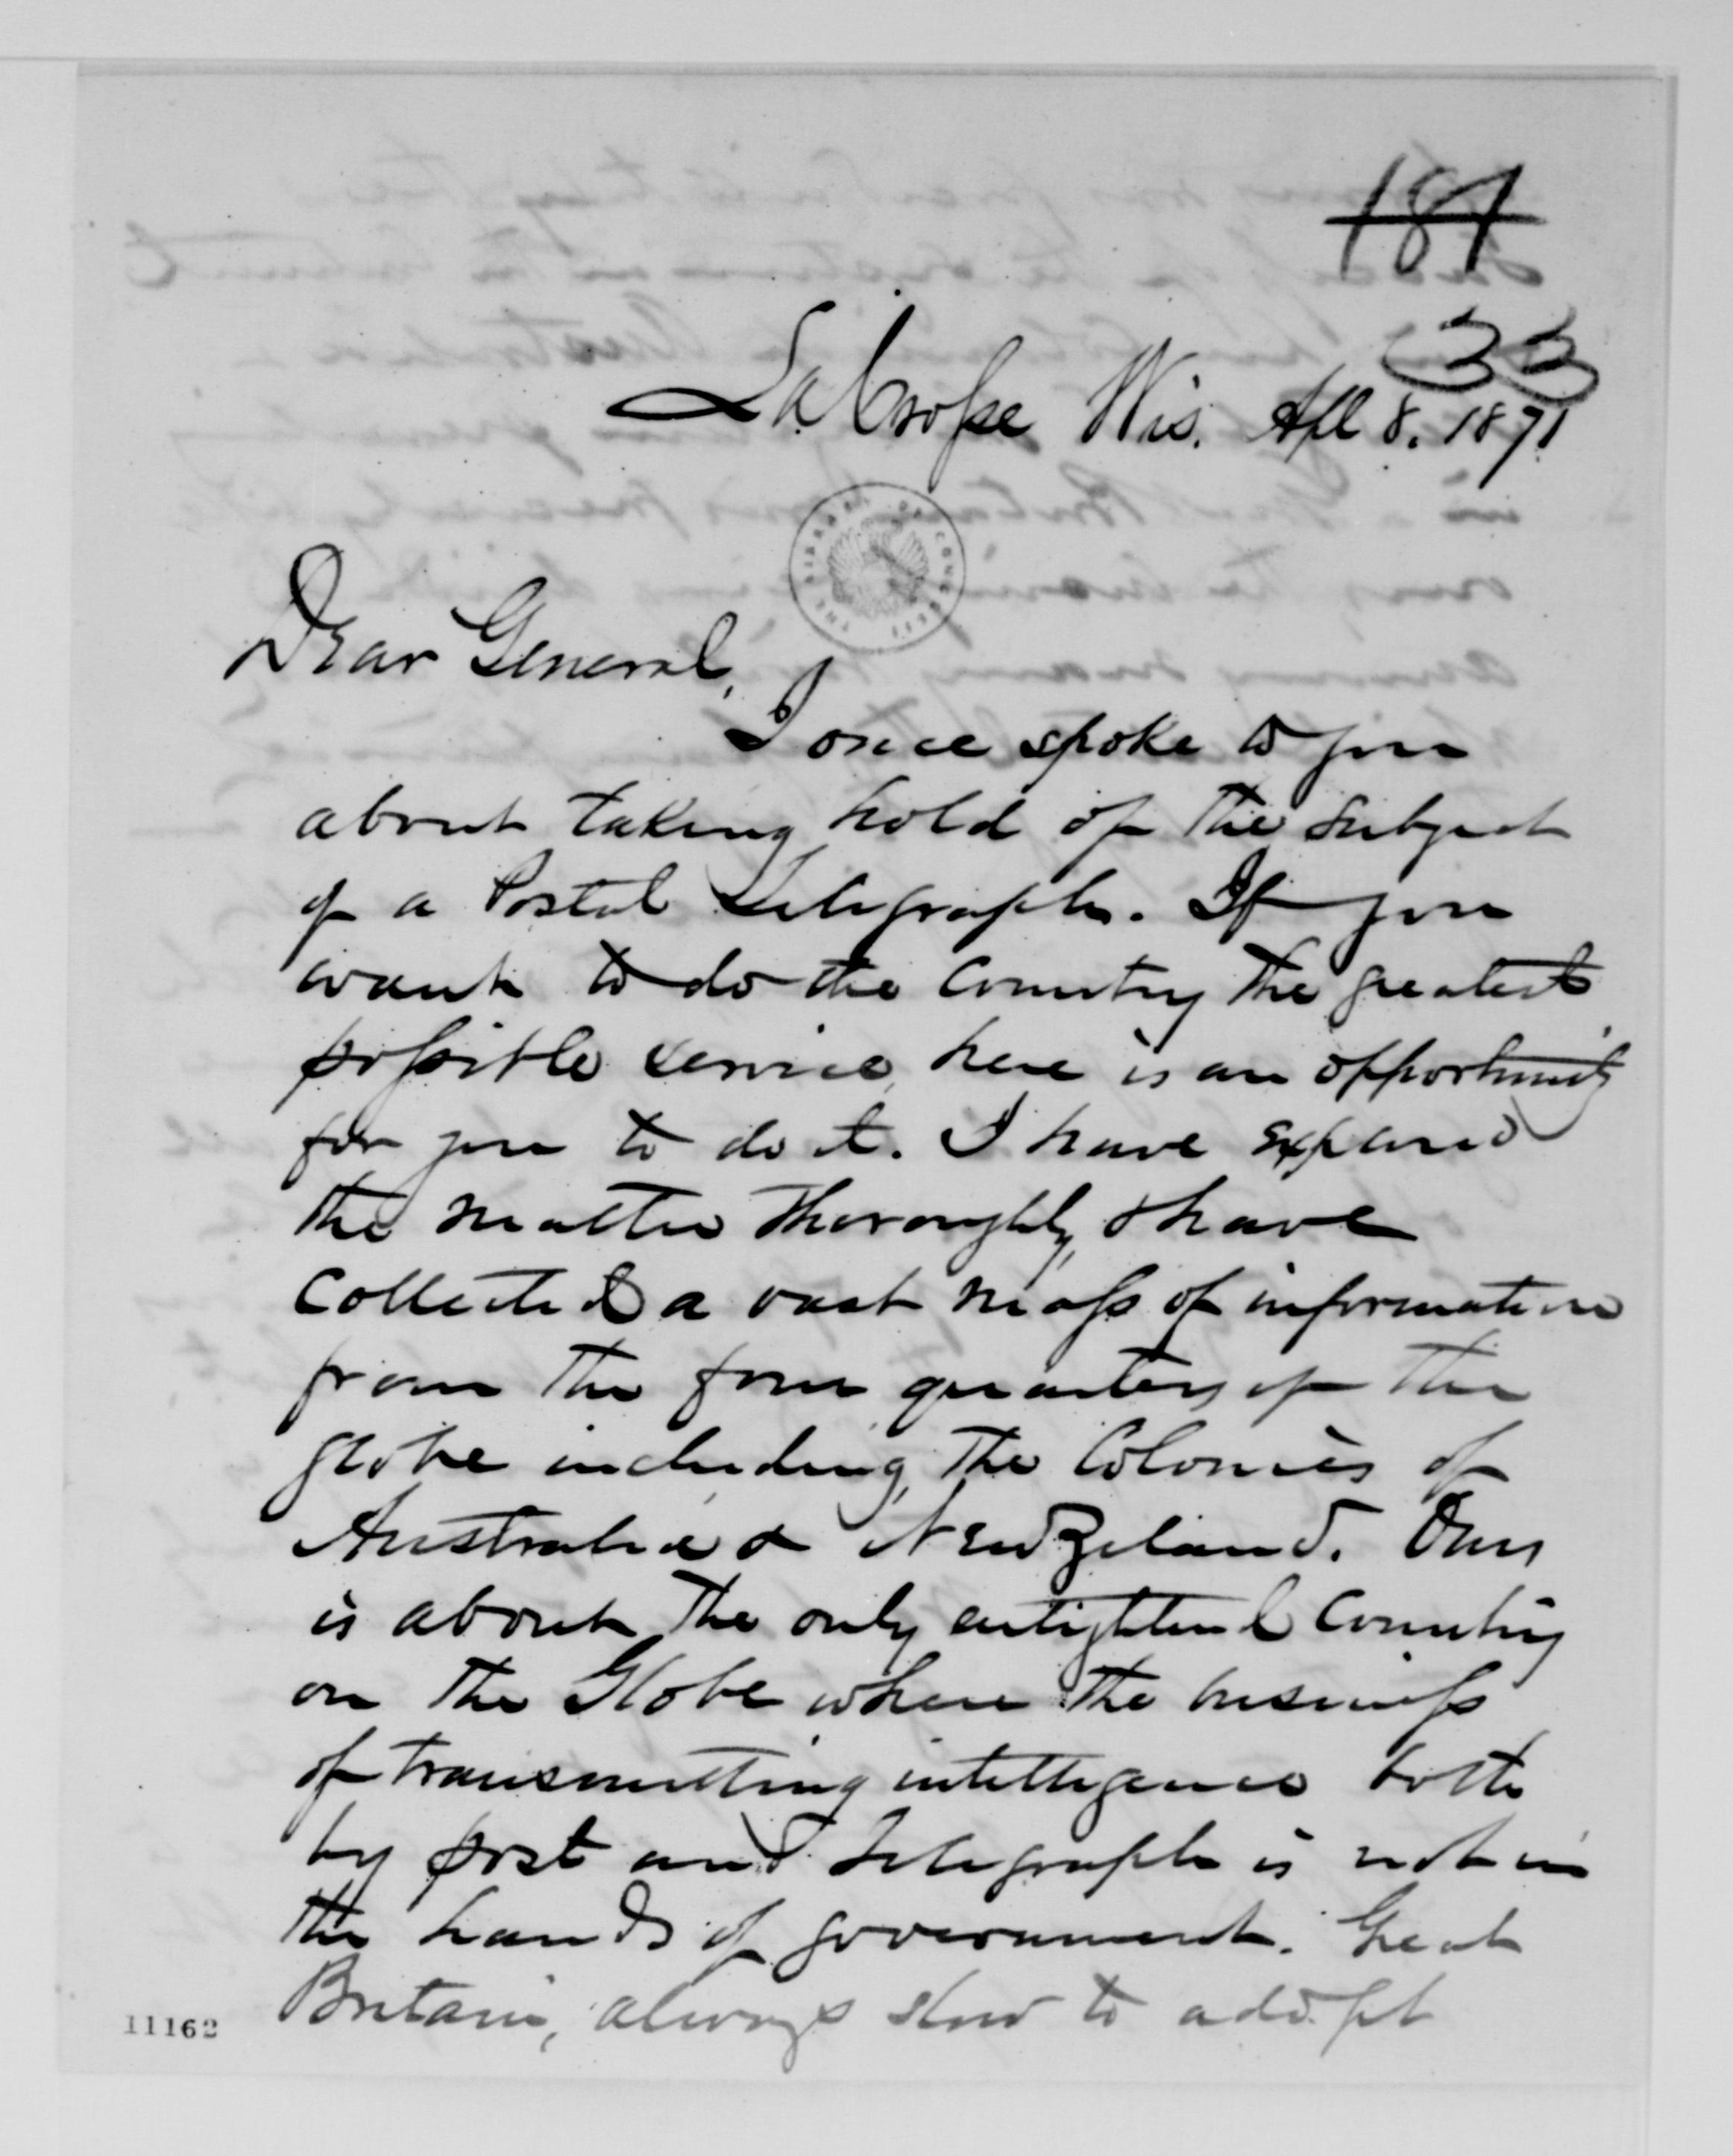 181
33
La Crosse Wis. Apl 8. 1871
THE LIBRARY OF CONGRESS
Dear General,
I once spoke to you
about taking hold of the subject
of a Postal Telegraph. If you
want to do the Country the greatest
possible service, here is an opportunity
for you to do it. I have
the matter thoroughly, & have
Collected a vast mass of information
from the four quarters of the
globe including, the Colonies of
Australia & New Zeland. Ours
is about the only enlightened Country
on the Globe where the business
of transmitting intelligence both
by post and Telegraph is not in
the hands of government. Great
Britain, always slow to adopt
11162